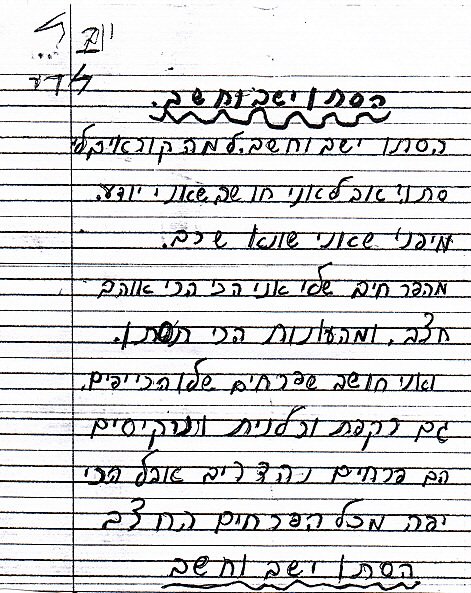 הסתו ישב וחשב.
הסתו ישב וחשב. למה קוראים לי
סתו? אבל אני חושב שאני יודע.
מיפני שאני שונא שרב.
מהפרחים שלי אני הכי הכי אוהב
חצב. ומהעונות הכי תסתו.
ואני חושב שפרחים שלו הכי יפים.
גם רקפת וכלנית ונרקיסים
הם פרחים נהדרים אבל הכי
יפה מכל הפרחים החצב
הסתו ישב וחשב